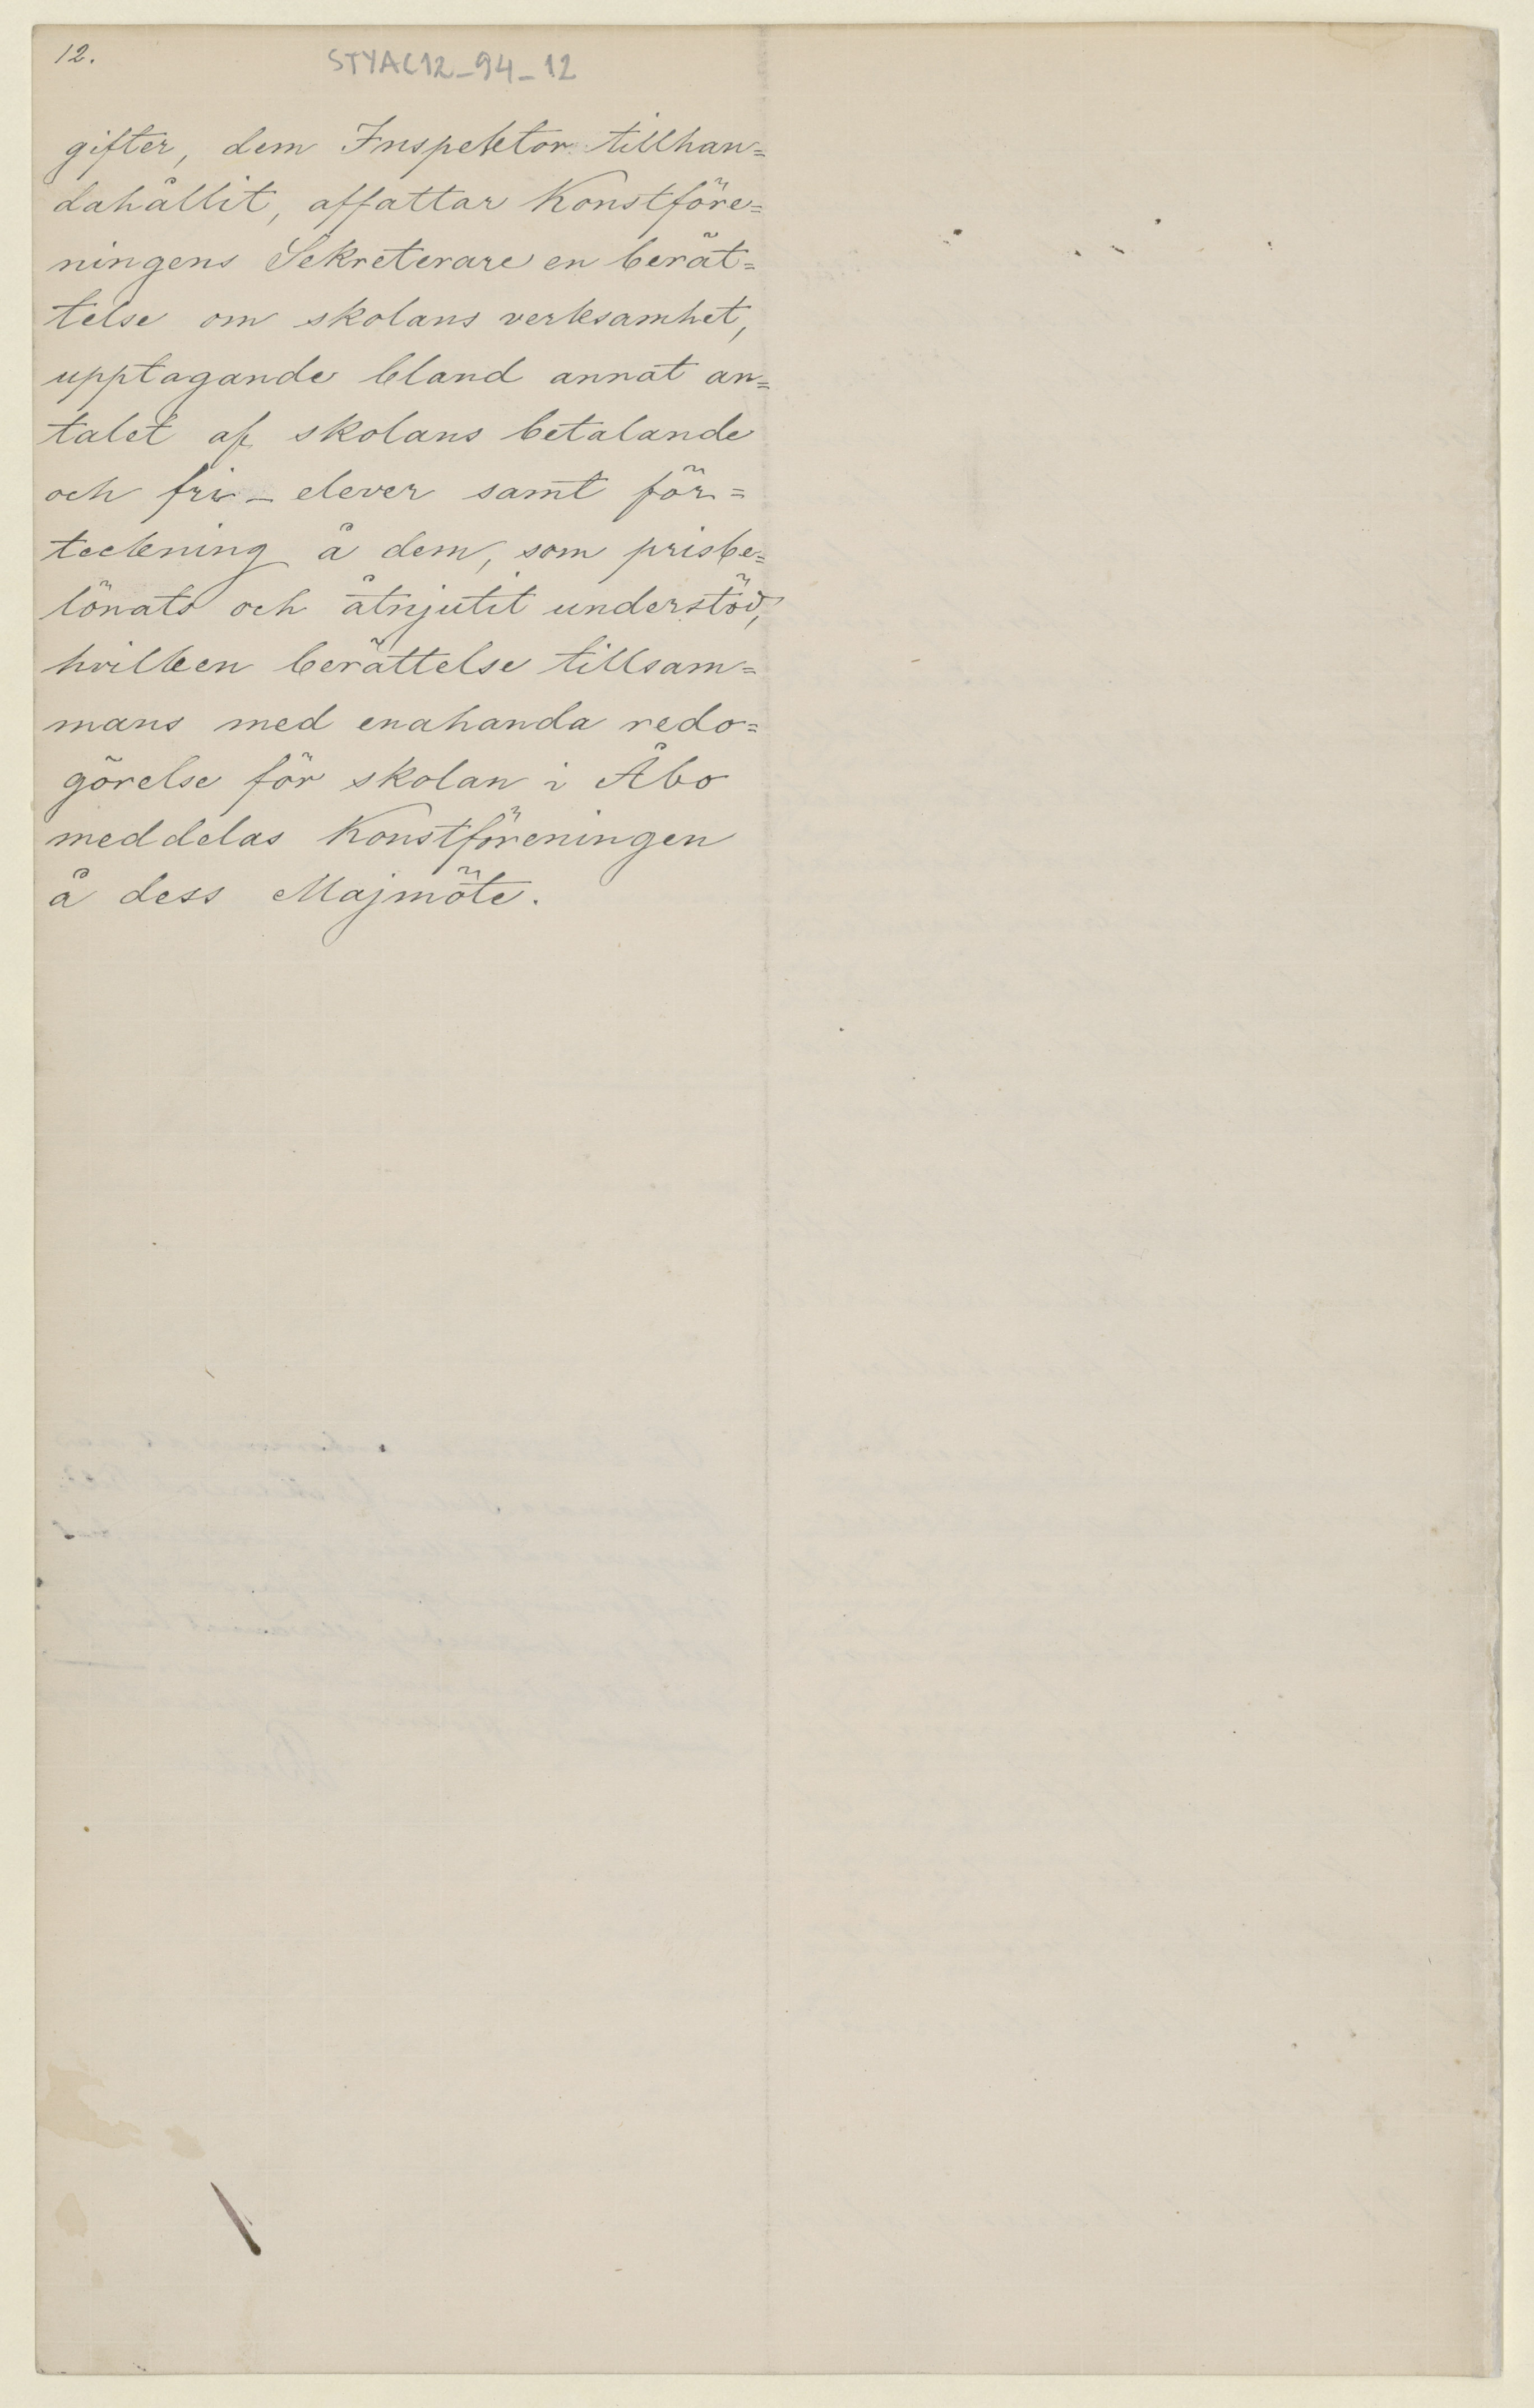 12.
STYAC12_94_12
gifter, dem Inspektor tillhan=
dahållit, affattar Konstföre=
ningens Sekreterare en berät=
telse om skolans verksamhet,
upptagande bland annat an=
talet af skolans betalande
och fri- elever samt för=
teckning å dem, som prisbe=
lönats och åtnjutit understöd,
hvilken berättelse tillsam=
mans med enahanda redo=
görelse för skolan i Åbo
meddelas Konstföreningen
å dess Majmöte.